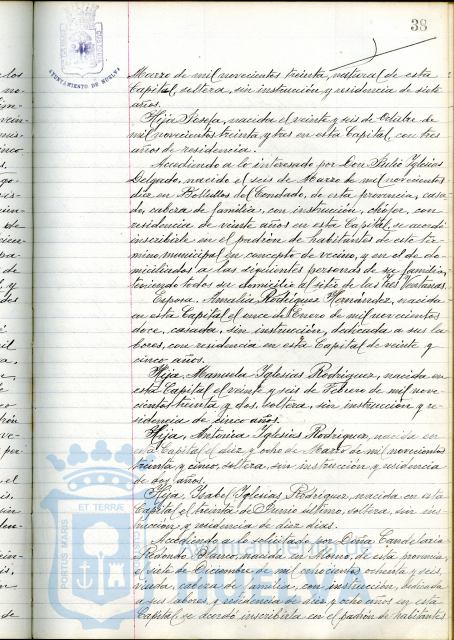 38
AYUNTAMIENTO DE HUELVA
Marzo de mil novecientos treinta, natural de esta
Capital, soltera, sin instrucción y residencia de siete
años.
Hija Josefa, nacida el veinte y seis de Octubre de
mil novecientos treinta y tres en esta Capital, con tres
años de residencia.
Accediendo a lo interesado por Don Julio Iglesias
Delgado, nacido el seis de Marzo de mil novecientos
diez en Bollullos del Condado, de esta provincia, casa-
do, cabeza de familia, con instrucción, chófer, con
residencia de veinte años en esta Capital, se acordó
inscribirle en el padrón de habitantes de este tér-
mino municipal en concepto de vecino, y en el de do-
miciliados a las siguientes personas de su familia,
teniendo todos su domicilio al sitio de las Tres Ventanas.
Esposa, Amalia Rodríguez Hernández, nacida
en esta Capital el once de Enero de mil novecientos
doce, casada, sin instrucción, dedicada a sus la-
bores, con residencia en esta Capital de veinte y
cinco años.
Hija, Manuela Iglesias Rodríguez, nacida en
esta Capital el veinte y seis de Febrero de mil nove-
cientos treinta y dos, soltera, sin instrucción, y re-
sidencia de cinco años.
Hija, Antonia Iglesias Rodríguez, nacida en
esta Capital el diez y ocho de Marzo de mil novecientos
treinta y cinco, soltera, sin instrucción y residencia
de dos años.
Hija, Isabel Iglesias Rodríguez, nacida en esta
Capital el treinta de Junio último, soltera, sin ins-
trucción, y residencia de diez días.
Accediendo a lo solicitado por Doña Candelaria
Redondo Barro, nacida en de esta provincia,
el siete de Diciembre de mil ochocientos ochenta y seis,
viuda, cabeza de familia, con instrucción, dedicada
a sus labores, y residencia de diez y ocho años en esta
Capital, se acordó inscribirla en el padrón de habitantes
PORTUS MARIS ET TERRAE
HUELVA